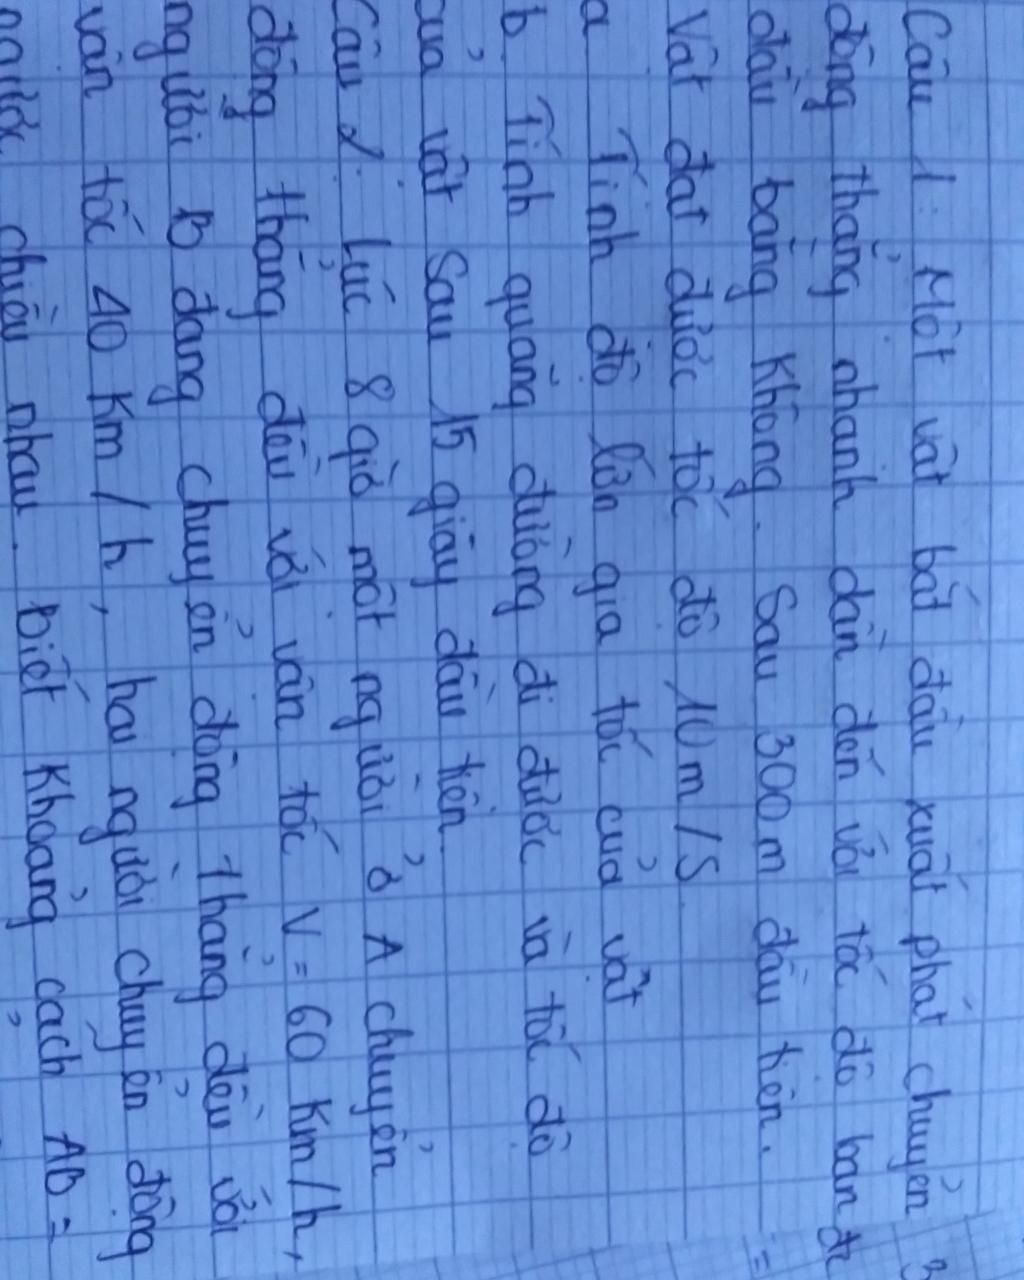 Câu 1: Một vật bắt đầu xuất phát chuyển
động thẳng nhanh dần đến với tốc độ ban đầ
đầu bằng không. Sau 300m đầu tiên.
Vật đạt được tốc độ 10m/s
a Tính độ lớn gia tốc của vật
b. Tính quảng đường đi được và tốc độ
của vật sau 15 giây đầu tiên.
Câu 2. Lúc 8 giờ một người ở A chuyển
động thẳng đều với vân tốc V = 60 km/h,
người B đang chuyển động thẳng đều với
vân tốc 40 km/h, hai người chuyển động
ngược chiều nhau. Biết khoảng cách AB =